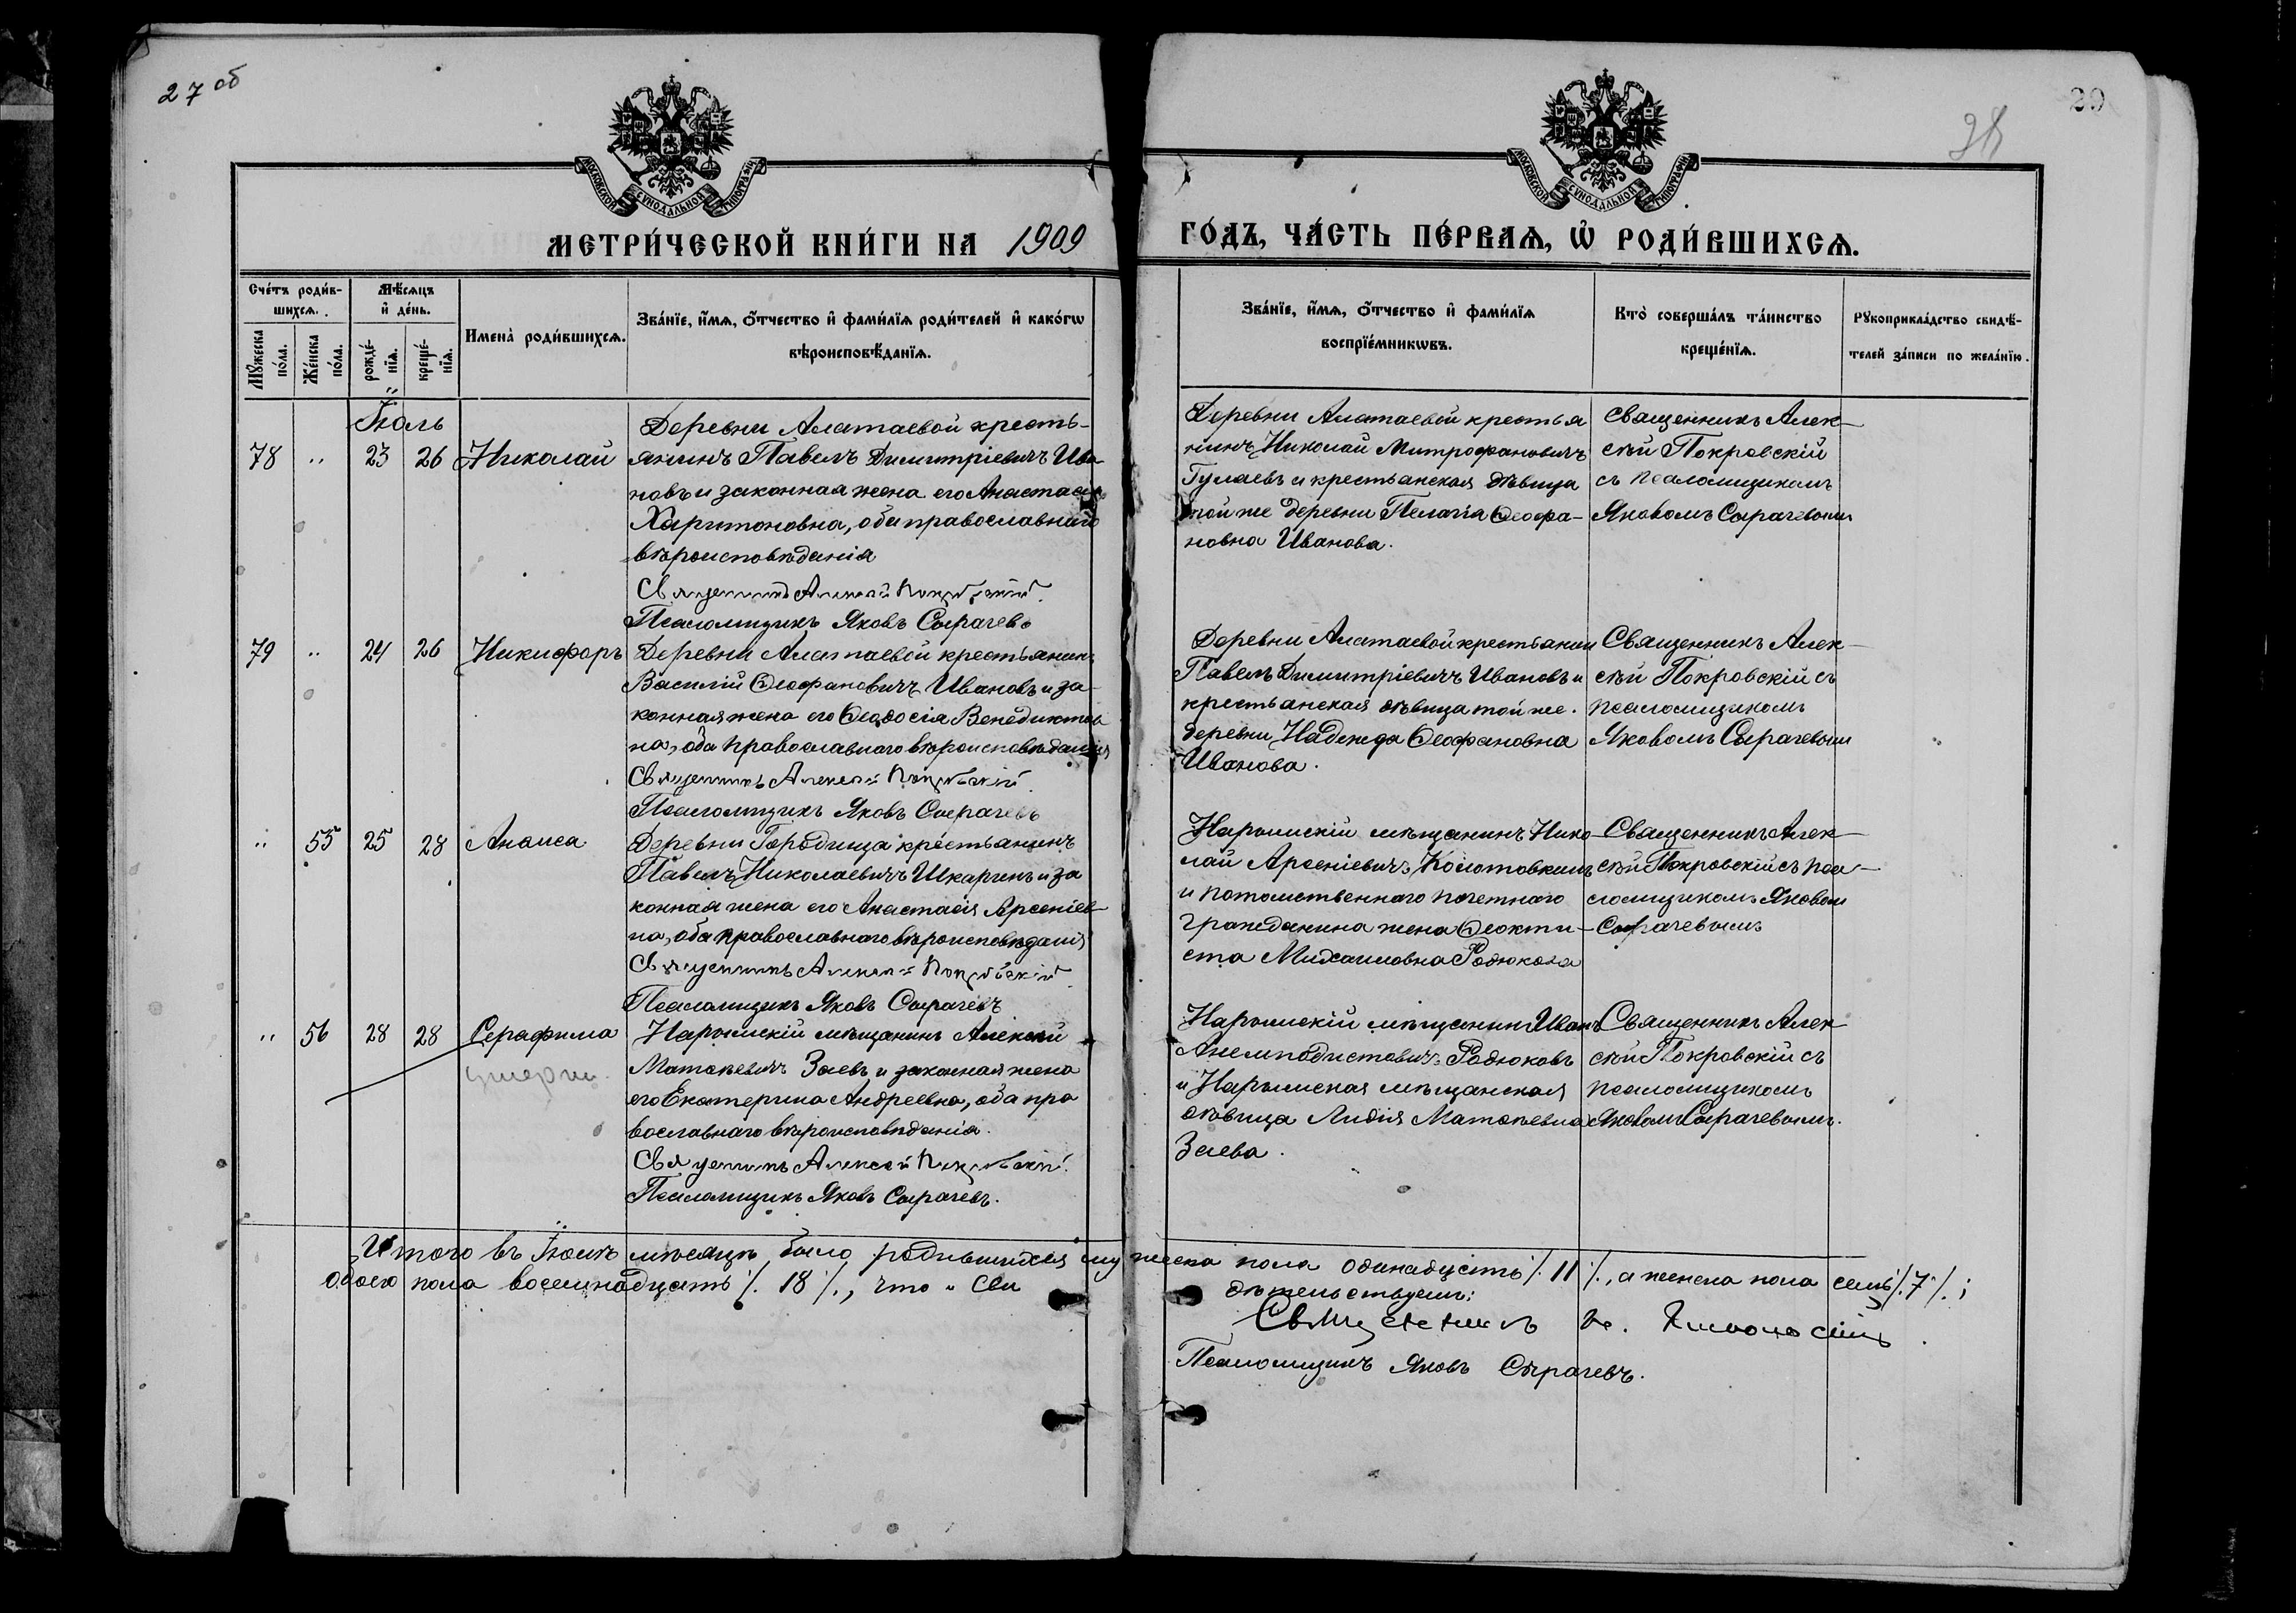 27 об
29
28
МОСКОВСКОЙ СѴНОДАЛЬНОЙ ТИПОГРАФІИ
МОСКОВСКОЙ СѴНОДАЛЬНОЙ ТИПОГРАФІИ
МЕТРИ́ЧЕСКОЙ КНИ́ГИ НА 1909
ГО́ДЪ, ЧА́СТЬ ПЕ́РВАѦ, Ѡ҆ РОДИ́ВШИХСѦ.
Сче́тъ роди́в-
шихсѧ.
Мѣ́сѧцъ
и҆ де́нь.
Мꙋ́жеска
по́ла.
Же́нска
по́ла.
рожде́-
нїѧ.
креще́-
нїѧ.
Имена̀ роди́вшихсѧ.
Зва́нїе, и҆́мѧ, ѻ҆́тчество и҆ фами́лїѧ роди́телей и҆ како́гѡ
вѣроисповѣ́данїѧ.
Зва́нїе, и҆́мѧ, ѻ҆́тчество и҆ фами́лїѧ
воспрїе́мникѡвъ.
Кто̀ соверша́лъ та́инство
креще́нїѧ.
Рꙋкоприкла́дство свидѣ́-
телей за́писи по жела́нїю.
Іюль
78 " 23 26 Николай
Деревни Алатаевой кресть-
янинъ Павелъ Димитріевичъ Ива-
новъ и законная жена его Анастасія
Харитоновна, оба православнаго
вѣроисповѣданія
Священникъ Алексѣй Покровскій.
Псаломщикъ Яковъ Сырачевъ
Деревни Алатаевой крестья
нинъ Николай Митрофановичъ
Гулаевъ и крестьянская дѣвица
той же деревни Пелагія Ѳеофа-
новна Иванова.
Священникъ Алек-
сѣй Покровскій
съ псаломщикомъ
Яковомъ Сырачевымъ
79 " 24 26 Никифоръ
Деревни Алатаевой крестьянинъ
Василій Ѳеофановичъ Ивановъ и за-
конная жена его Ѳеодосія Венедиктов
на, оба православнаго вѣроисповѣданія
Священникъ Алексѣй Покровскій.
Псаломщикъ Яковъ Сырачевъ
Деревни Алатаевой крестьянин
Павелъ Димитріевичъ Ивановъ и
крестьянская дѣвица той же
деревни Надежда Ѳеофановна
Иванова.
Священникъ Алек-
сѣй Покровскій съ
псаломщикомъ
Яковомъ Сырачевым
" 55 25 28 Анаиса
Деревни Городища крестьянинъ
Павелъ Николаевичъ Шкаринъ и за
конная жена его Анастасія Арсеніев-
на, оба православнаго вѣроисповѣданія
Священникъ Алексѣй Покровскій.
Псаломщикъ Яковъ Сырачевъ
Нарымскій мѣщанинъ Нико-
лай Арсеніевичъ Колотовкинъ
и потомственнаго почетнаго
гражданина жена Ѳеокти-
ста Михаиловна Родюкова
Священникъ Алек-
сѣй Покровскій съ пса-
ломщикомъ Яковом
Сырачевымъ
" 56 28 28 Серафима
умерла.
Нарымскій мѣщанинъ Алексѣй
Матѳеевичъ Заевъ и законная жена
его Екатерина Андреевна, оба пра
вославнаго вѣроисповѣданія.
Священникъ Алексѣй Покровскій.
Псаломщикъ Яковъ Сырачевъ.
Нарымскій мѣщанинъ Иванъ
Анемподистовичъ Родюковъ
и Нарымская мѣщанская
дѣвица Лидія Матѳеевна
Заева.
Священникъ Алек
сѣй Покровскій съ
псаломщикомъ
Яковомъ Сырачевымъ.
Итого въ Іюлѣ мѣсяцѣ было родившихся мужеска пола одинадцать /. 11 /., а женска пола семь /. 7 /.;
обоего пола восемнадцать /. 18 /., что и сви
дѣтельствуемъ:
Священникъ
Псаломщикъ Яковъ Сырачевъ.